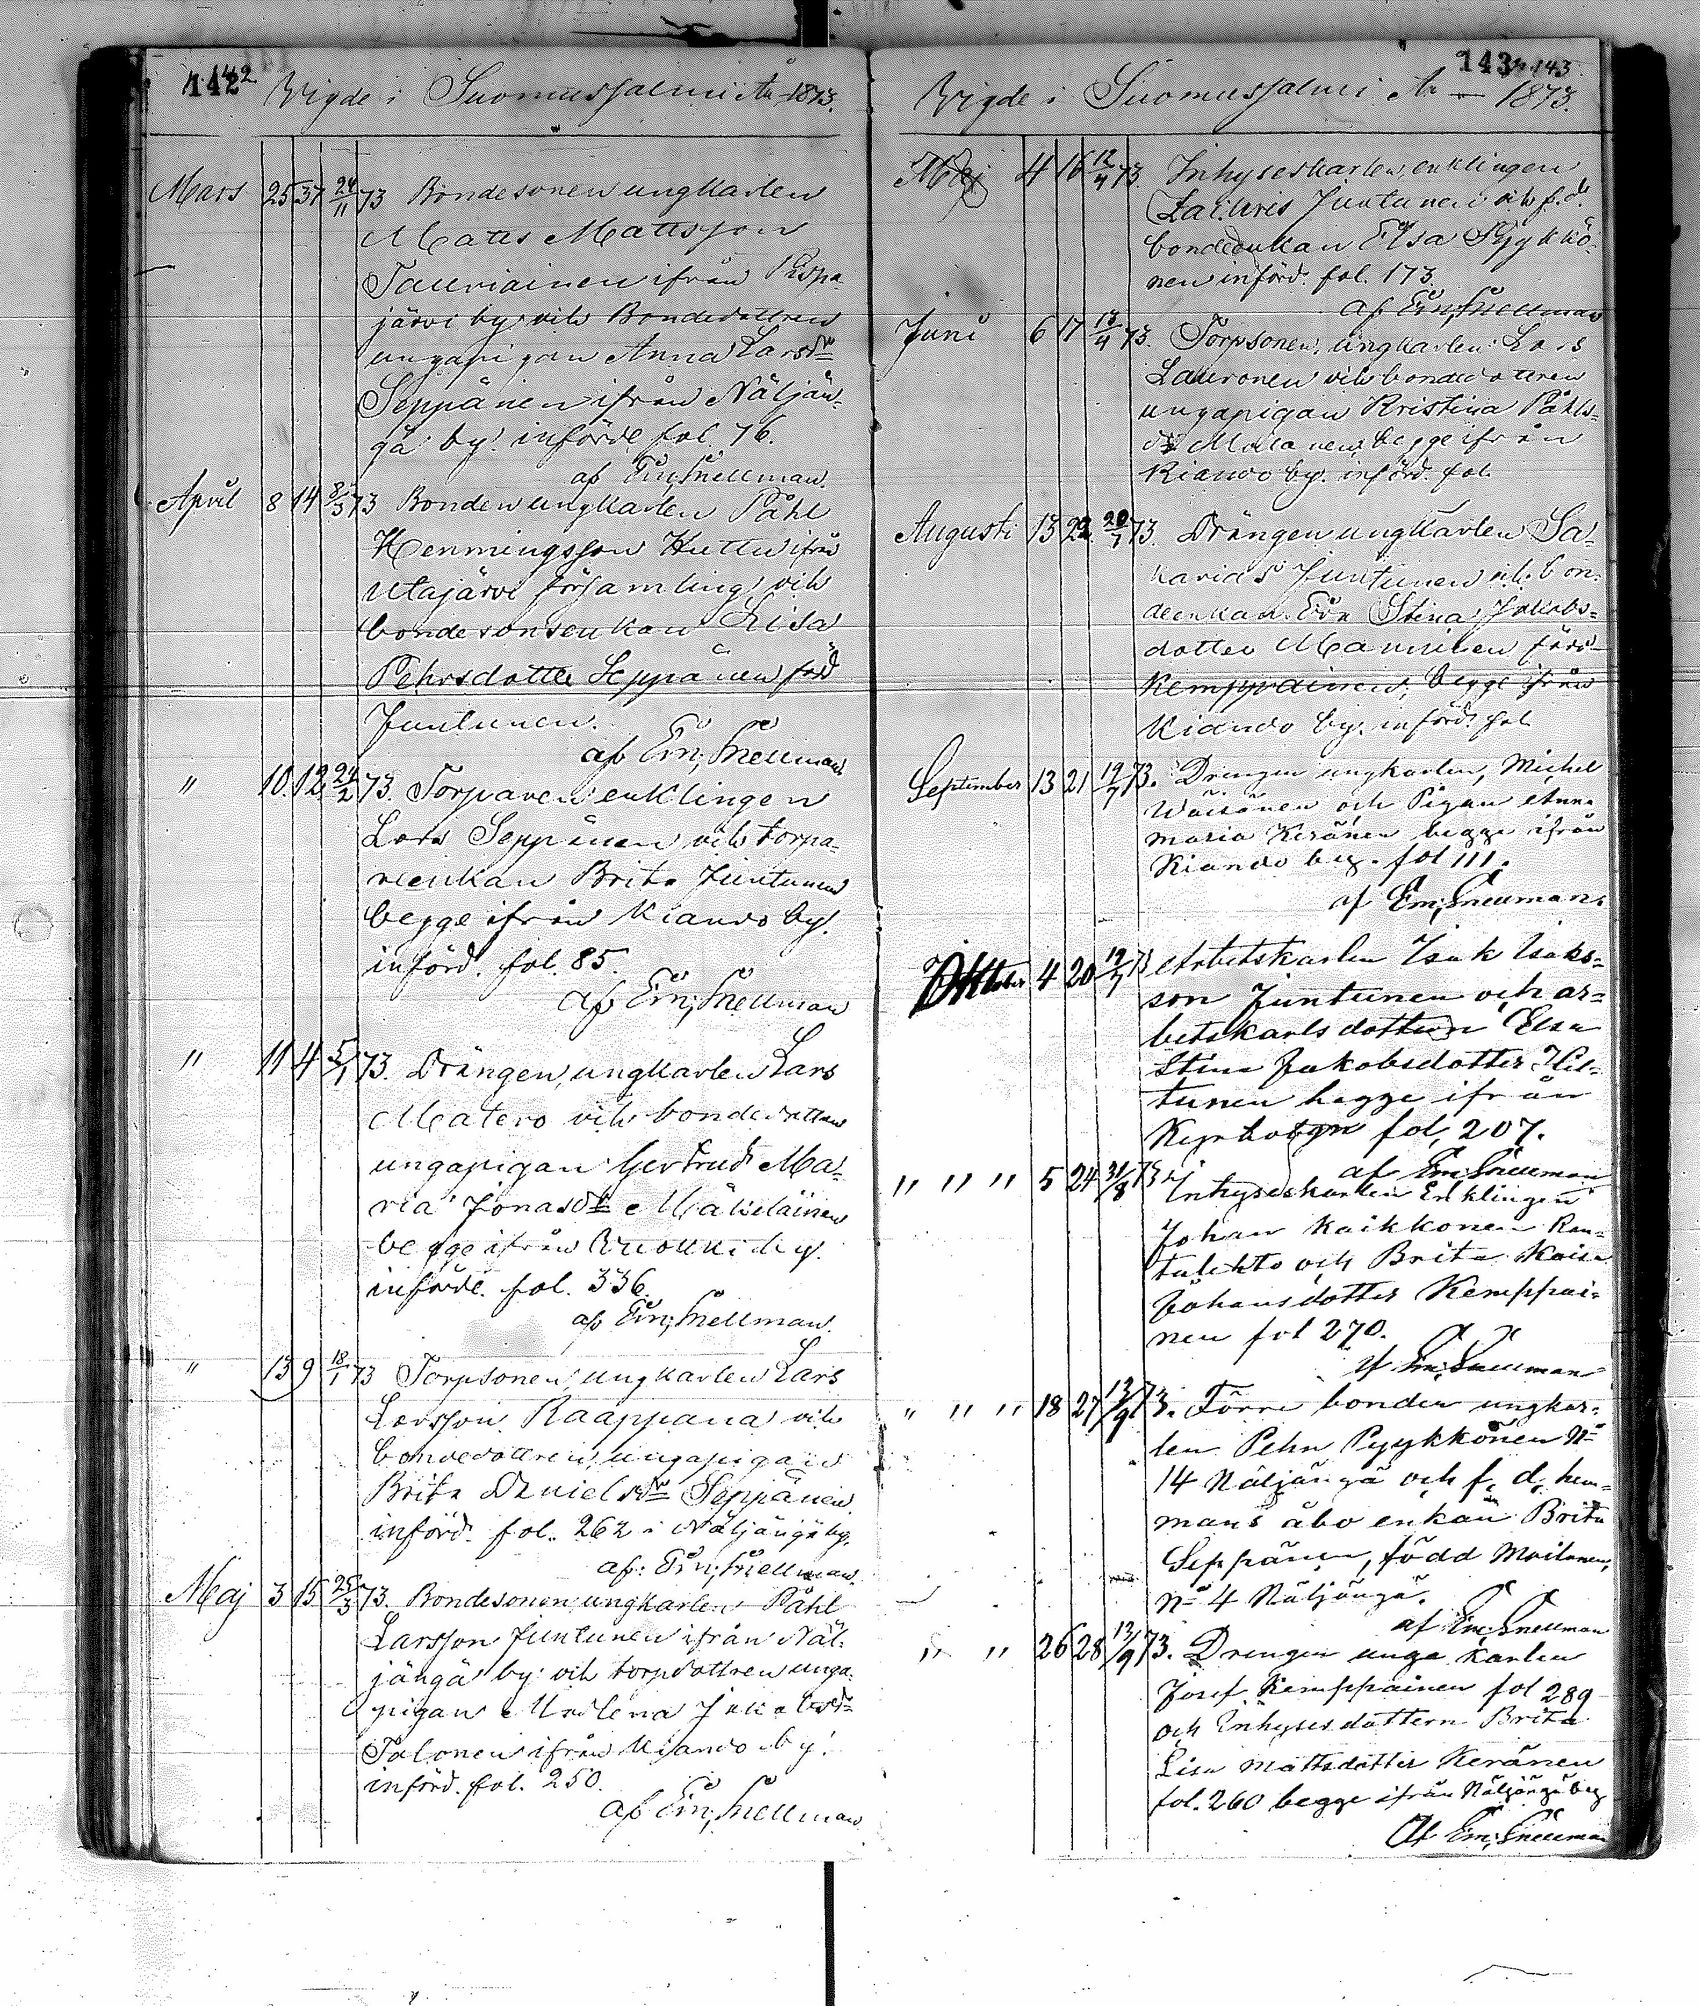 142
Wigde i Suomussalmi År 1873.
Mars 25 37 24/11 73 Bondesonen ungkarlen
Matts Mattsson
Tauriainen ifrån Pispa-
järvi by och Bondedottren
ungapigan Anna Larsdr
Seppänen ifrån Näljän-
gä by. införde fol. 76.
af Em; Snellman.
April 8 14 8/3 73 Bonden ungkarlen Påhl
Henningsson Huttu ifrån
Utajärvi församling, och
bondesonsenkan Lisa
Pehrsdotter Seppänen född
Juntunen.
af Em; Snellman
" 10. 12 24/2 73. Torparen enklingen
Lars Seppänen och torpa-
reenkan Brita Juntunen
begge ifrån Kiando by.
införd. fol. 85.
af Em; Snellman
" 11 4 5/1 73. Drängen, ungkarlen Lars
Matero och bondedottren
ungapigan Gertrud Ma-
ria Jonasdr Mäkeläinen
begge ifrån Wuokki by.
införde. fol. 336.
af Em; Snellman.
" 13 9 18/1 73 Torpsonen, ungkarlen Lars
Larsson Raappana och
bondedottren, ungapigan
Brita Danielsdr Seppänen
införd. fol. 262 i Näljängä by.
af: Em; Snellman.
Maj 3 15 25/3 73. Bondesonen, ungkarlen Påhl
Larsson Juntunen ifrån Näl-
jängä by och torpdottren unga
pigan Madlena Jakobsdr
Talonen ifrån Kiando by.
införd. fol. 250.
af Em; Snellman
143 143
Wigde i Suomussalmi År 1873.
Maj 4 16 12/4 73. Inhyseskarlen, enklingen
Zachris Juntunen och f.d.
bondeenkan Elsa Pyykkö-
nen införd. fol. 173.
af Em; Snellman
Juni 6 17 13/4 73. Torpsonen, ungkarlen Lars
Lauronen och bondedottren
ungapigan Kristina Påhls-
dr Moilanen, begge ifrån
Kiando by. införd. fol.
Augusti 15 22 20/7 73. Drängen ungkarlen Sa-
karias Juntunen och bon-
deenkan Eva Stina Jakobs-
dotter Manninen född
Kemppainen, begge ifrån
Kiando by. införd. fol
September 13 21 19/7 73. Drengen ungkarlen, Michel
Wäisänen och Pigan Anna
Maria Keränen begge ifrån
Kiando by. fol 111.
af Em; Snellman.
Oktober 4 20 12/7 73 Arbetskarlen Isak Isaks-
son Juntunen och ar-
betskarlsdottern Elsa
Stina Jakobsdotter Hil-
tunen begge ifrån
Kyrkobyn fol, 207.
af Em; Snellman
" " " 5 24 31/8 73 Inhyseskarlen Enklingen
Johan Kaikkonen Ran-
talehto och Brita Kaisa
Johansdotter Kemppai-
nen fol 270.
af Em; Snellman
" " " 18 27 13/9 73. Förre bonden ungkar-
len Pehr Pyykkönen No
14 Näljängä och f, d, hem-
mans åbo enkan Brita
Seppänen, född Moilanen,
No 4 Näljängä.
af Em; Snellman
" " 26 28 13/9 73. Drengen unga karlen
Josef Kemppainen fol 289
och Inhysesdottern Brita
Lisa Mattsdotter Keränen
fol. 260 begge ifrån Näljängä by
Af Em; Snellman